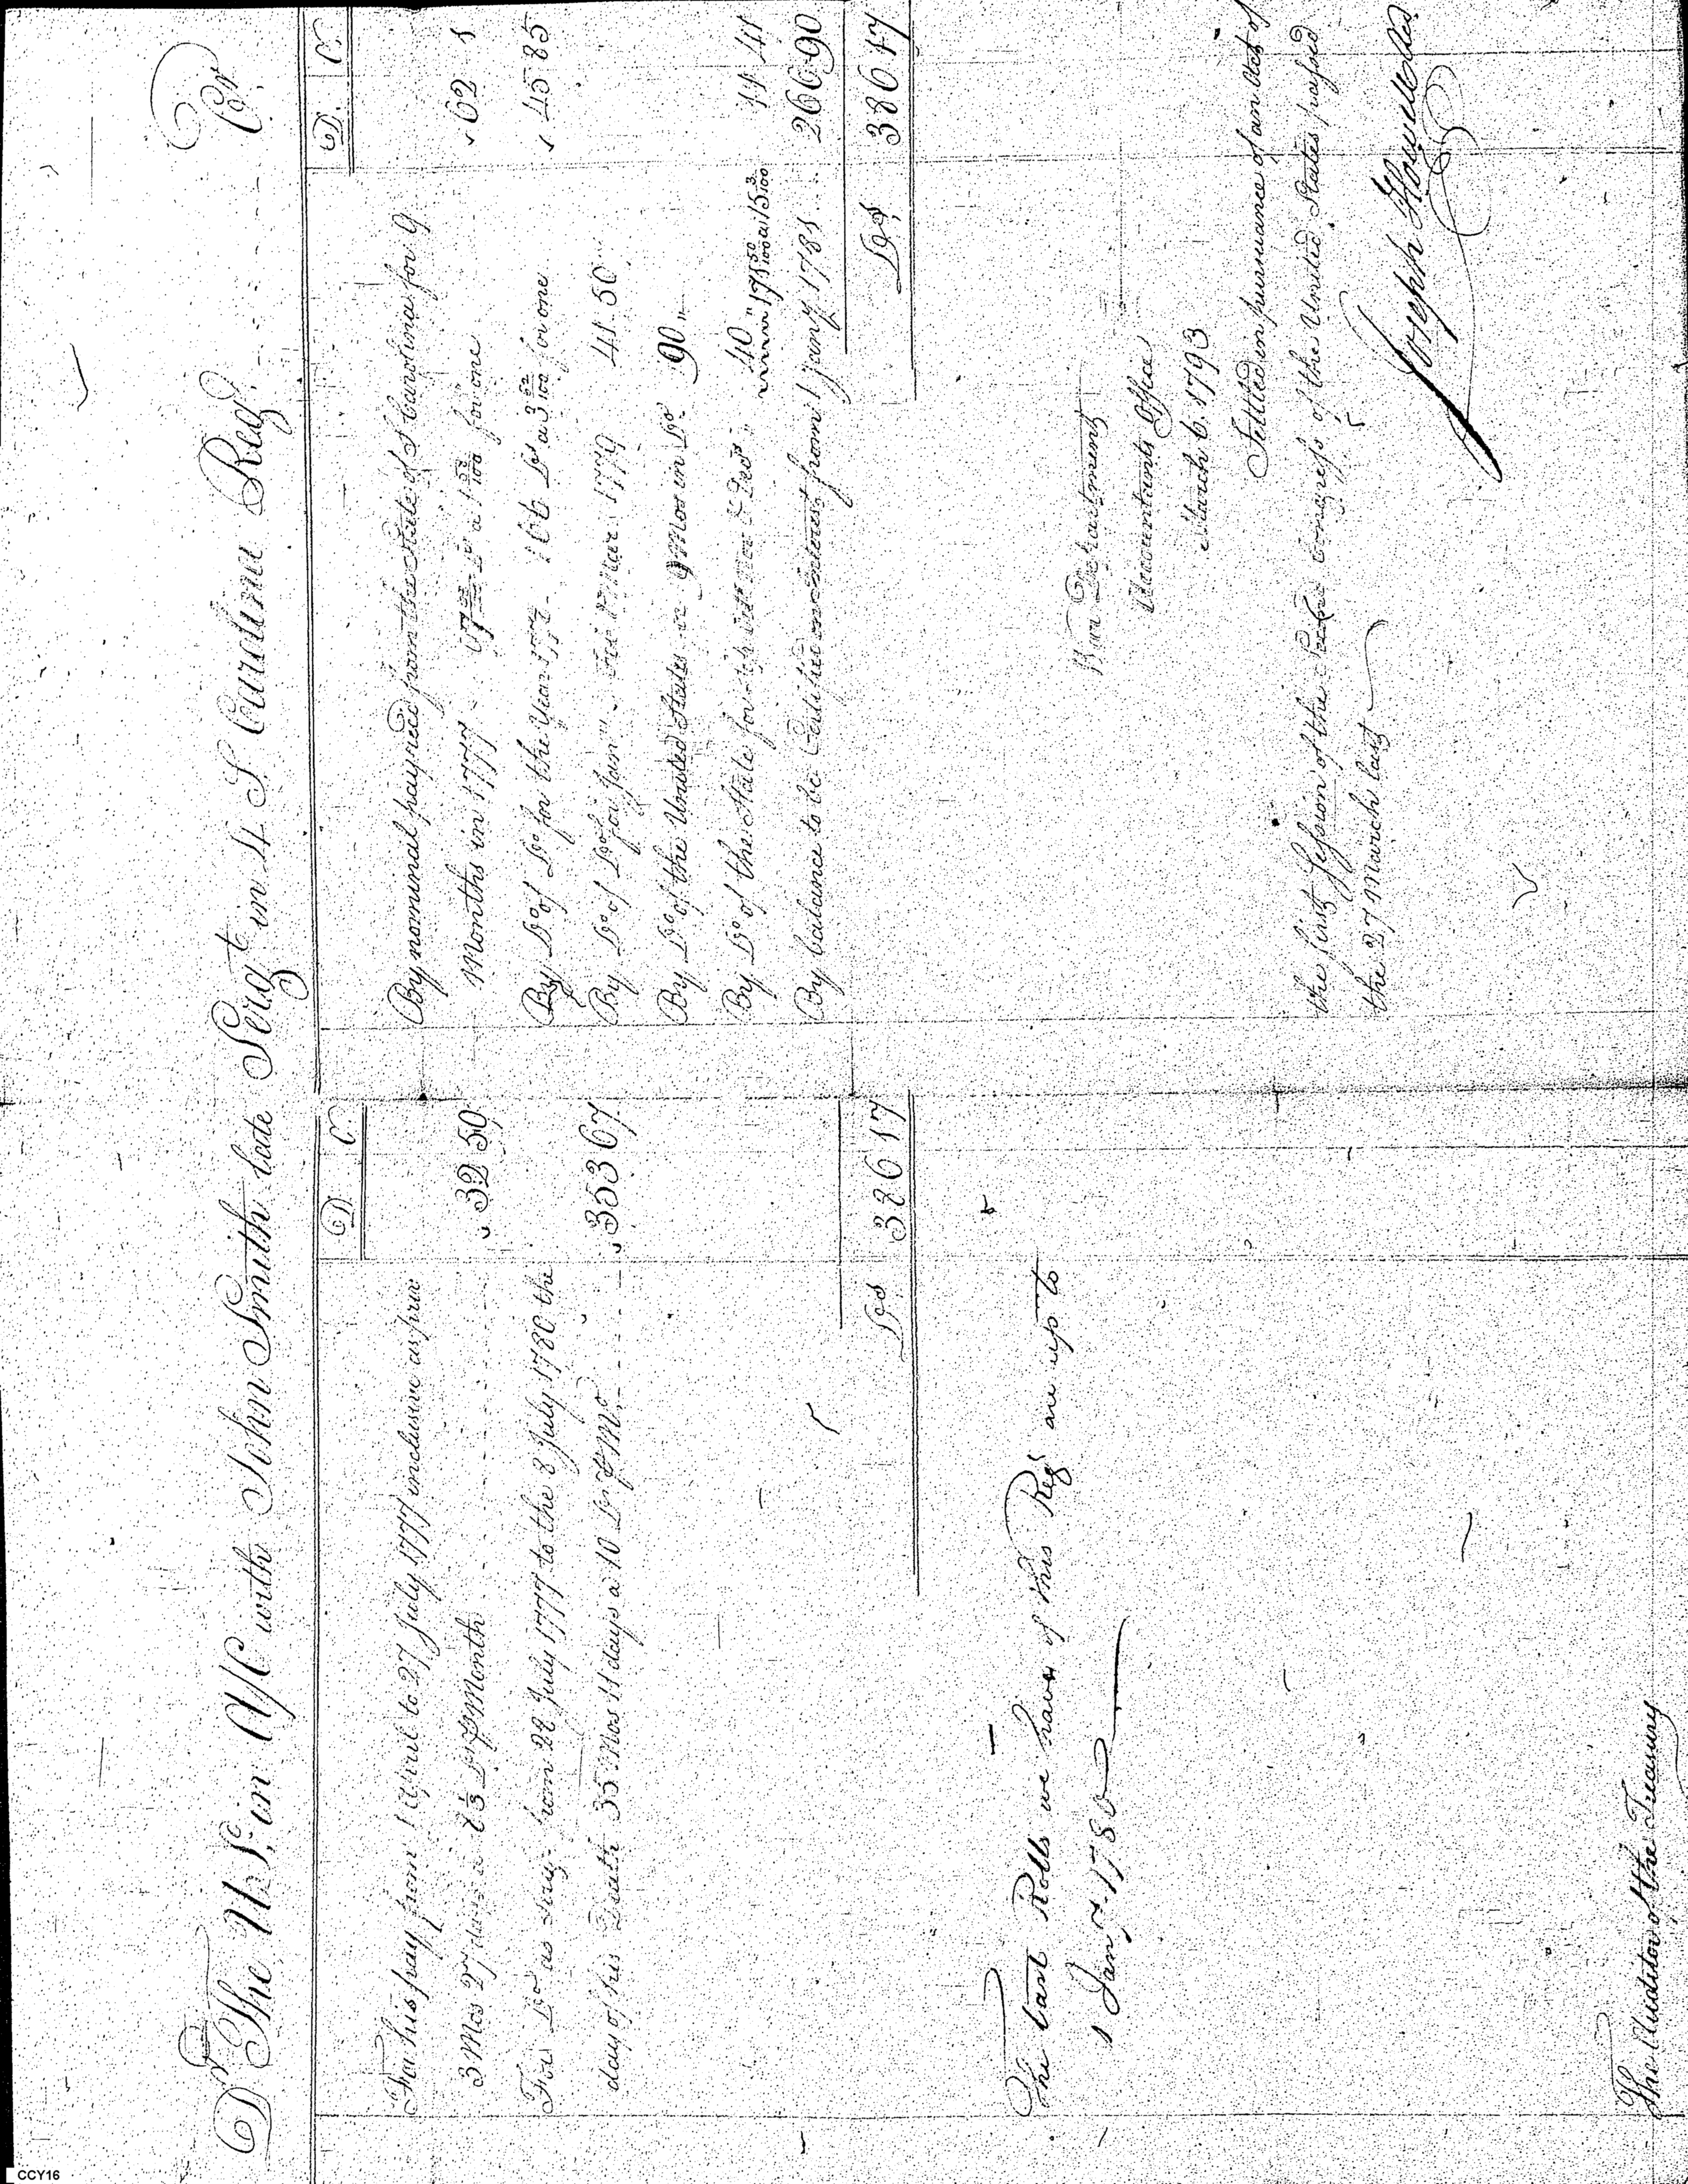 Dr The U.S. in A/C with John Smith late Sergt in 4 S. Carolina Regt Cr
D. C.
For his pay from 1 April to 27 July 1777 inclusive as priv
3 Mos 27 days a 8 1/3 Drs P Month 32 50
For Do as Serg. from 28 July 1777 to the 8 July 1780 the
day of his Death 35 Mos 11 days a 10 Drs P Mo 353 67
Drs 386 17
The last Rolls we have of this Regt are up to
1 Jany 1780
The Auditor of the Treasury
D. C.
By nominal pay recd from the State of S Carolina for 9
Months in 1777 Ds a 1 for one 62 1
By Do of Do for the Year 177 166 Ds a 3 62/100 for one 45 85
By Do of Do for Jany Feb & Mar 1779 41.50
By Do of the United States 9 Mos in Do 90 "
By Do of the State for Octr Nov & Decr " 40 " 171 50/100 a 15 3/100 11 41
By balance to be Certified on interest from 1 jany 1781 266 90
Drs 386 17
War Department
Accountants Office
March 6. 1793
Settled in pursuance of an Act of
the first Session of the Congress of the United States passed
the 27 March last
Joseph Howell
CCY16